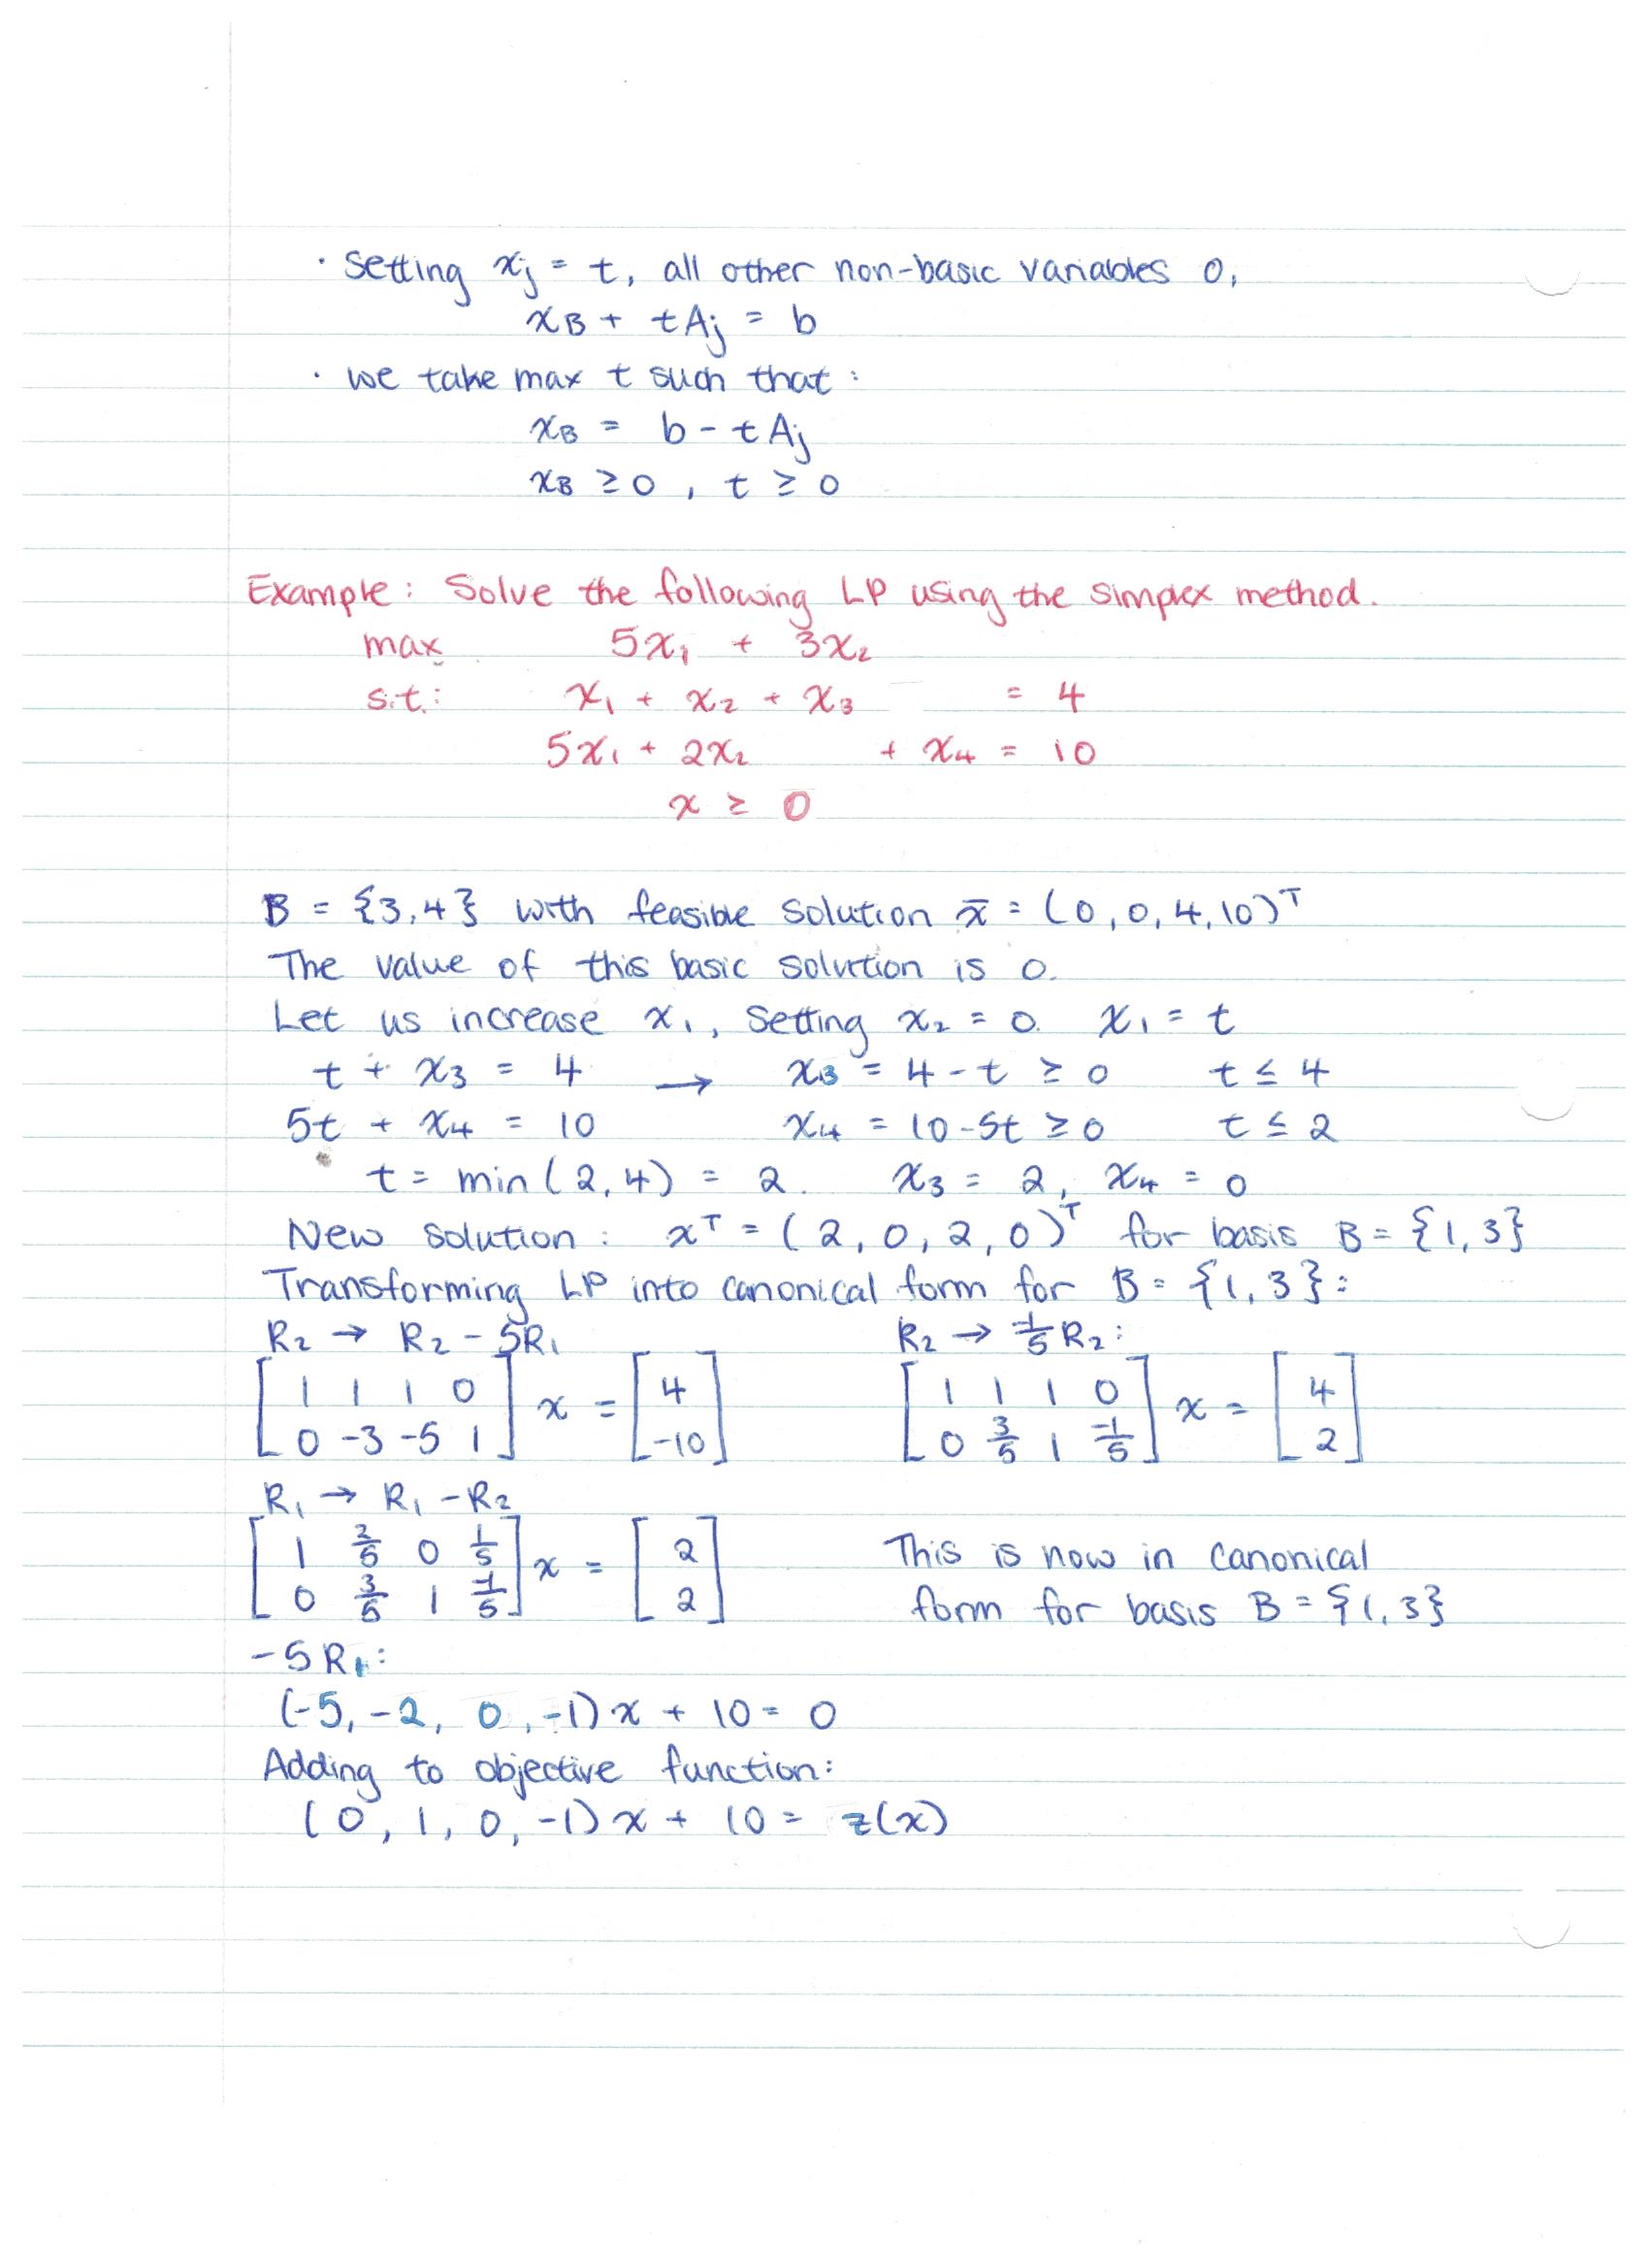 · Setting xj = t, all other non-basic variables 0,
xB + tAj = b
· we take max t such that:
xB = b - tAj
xB ≥ 0, t ≥ 0
Example: Solve the following LP using the simplex method.
max 5x₁ + 3x₂
s.t.: x₁ + x₂ + x₃ = 4
5x₁ + 2x₂ + x₄ = 10
x ≥ 0
B = {3,4} with feasible solution x̄ = (0, 0, 4, 10)ᵀ
The value of this basic solution is 0.
Let us increase x₁, setting x₂ = 0. x₁ = t
t + x₃ = 4 → x₃ = 4 - t ≥ 0 t ≤ 4
5t + x₄ = 10 x₄ = 10 - 5t ≥ 0 t ≤ 2
t = min(2,4) = 2. x₃ = 2, x₄ = 0
New solution: xᵀ = (2, 0, 2, 0)ᵀ for basis B = {1, 3}
Transforming LP into canonical form for B = {1, 3}:
R₂ → R₂ - 5R₁ R₂ → -1/5 R₂:
[1 1 1 0] x = [4] [1 1 1 0] x = [4]
[0 -3 -5 1] [-10] [0 3/5 1 -1/5] [2]
R₁ → R₁ - R₂
[1 2/5 0 1/5] x = [2] This is now in canonical
[0 3/5 1 -1/5] [2] form for basis B = {1, 3}
-5R₁:
(-5, -2, 0, -1)x + 10 = 0
Adding to objective function:
(0, 1, 0, -1)x + 10 = z(x)